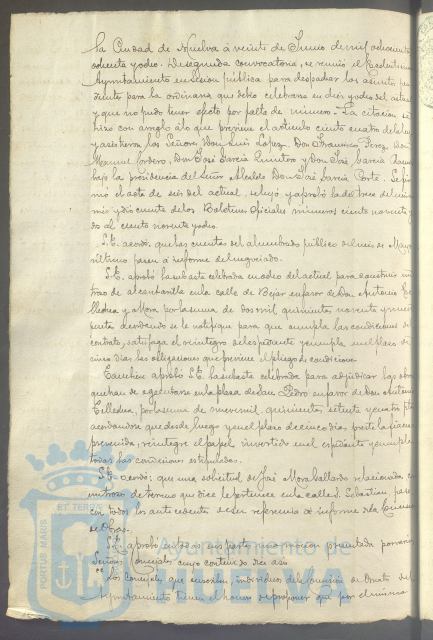 la Ciudad de Huelva á veinte de Junio de mil ochocientos
ochenta y ocho. De segunda convocatoria, se reunió el Excelentísimo
Ayuntamiento en sesión pública para despachar los asuntos pen
dientes para la ordinaria que debió celebrarse en diez y ocho del actual
y que no pudo tener efecto por falta de número. La citación se
hizo con arreglo á lo que previene el artículo ciento cuatro de la ley
y asistieron los Señores Don Luis Lopez, Don Francisco Perez, Don
Manuel Cordero, Don José García Quintero y Don José García Ramos
bajo la presidencia del Señor Alcalde Don José García
el acta de seis del actual, se leyó y aprobó la del trece del mis
mo y dió cuenta de los Boletines Oficiales números ciento noventa y
dos al ciento noventa y ocho.
S.E. acordó, que las cuentas del alumbrado público del mes de Mayo
último pasen á informe del negociado.
S.E. aprobó la subasta celebrada en ocho del actual para construir un
trozo de alcantarilla en la calle de Bejar en favor de Don Antonio
y Mora, por la suma de dos mil quinientas noventa y nueve
pesetas debiendo se le notifique para que cumpla las condiciones del
contrato, satisfaga el reintegro del expediente y cumpla en el plazo de
cinco días las obligaciones que previene el pliego de condiciones.
Tambien aprobó S.E. la subasta celebrada para adjudicar las obras
que han de ejecutarse en la plaza de San Pedro en favor de Don Antonio
por la suma de nueve mil quinientas setenta y cuatro ptas
acordandose que desde luego y en el plazo de cinco días preste la fianza
prevenida, reintegre el papel invertido en el expediente y cumpla
todas las condiciones estipuladas.
S.E. acordó: que una solicitud de José Mora Gallardo relacionada con
un trozo de terreno que dice le pertenece en la calle S. Sebastian pase
con todos los antecedentes de su referencia á informe de la Comisión
de Obras.
S.E. aprobó en todas sus partes una mocion presentada por varios
Señores Concejales cuyo contenido dice así:
"Los Concejales que suscriben, individuos de la Comisión de Ornato del
Ayuntamiento tienen el honor de proponer que por el mismo
PORTUS MARIS
ET TERRAE
Ayuntamiento de
HUELVA